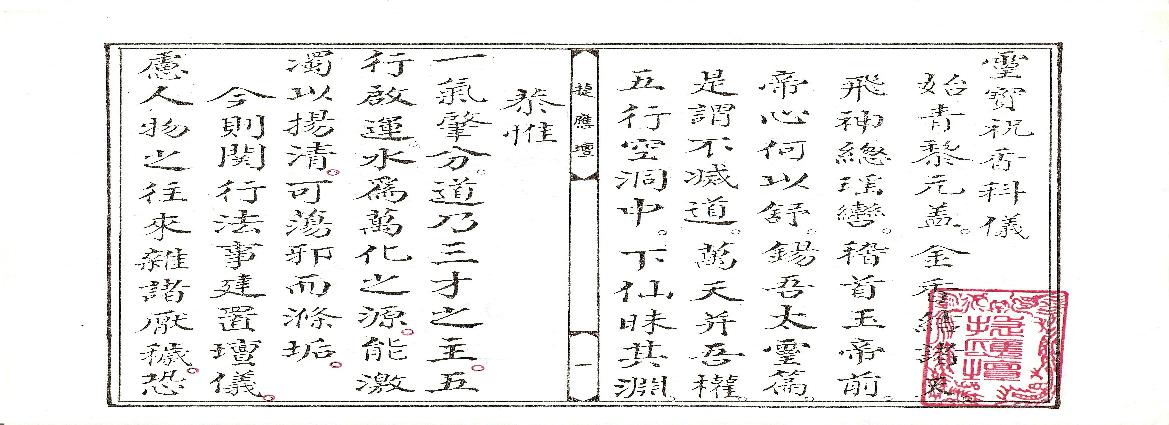 靈寶祝香科儀
始青黎元盖。金
飛神總瑤轡。稽首玉帝前。
帝心何以舒。錫吾太靈篇。
是謂不滅道。萬天并吾權。
五行空洞中。下仙昧其淵。
捷應壇
一
恭惟
一氣肇分。道乃三才之主。五
行啟運。水爲萬化之源。能激
濁以揚清。可蕩邪而滌垢。
今則関行法事建置壇儀。
慮人物之往來雜諸厭穢。恐